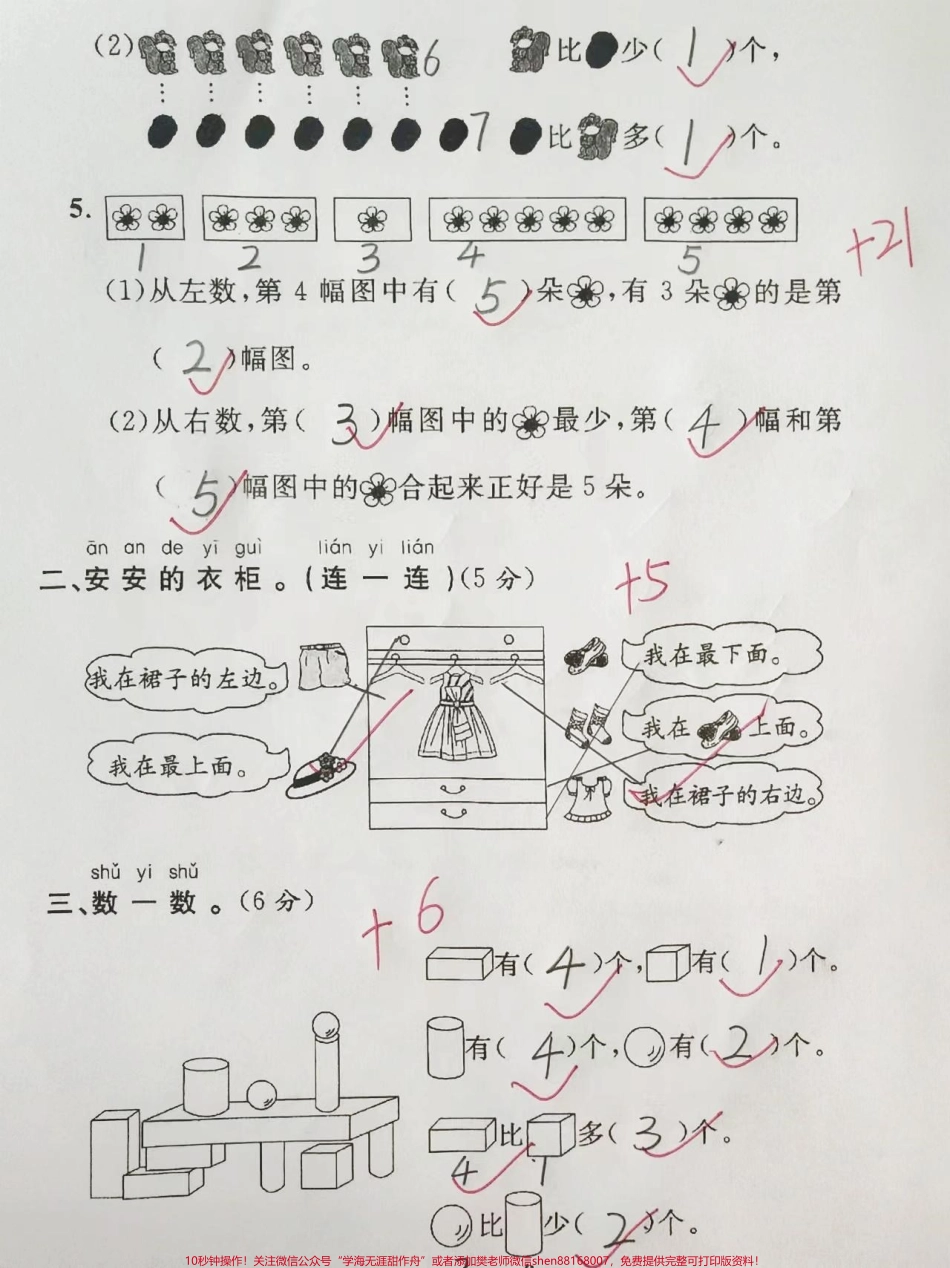 (2) 6 比少( 1 )个,
7 比多( 1 )个。
5.
1 2 3 4 5
+21
(1)从左数,第 4 幅图中有( 5 )朵,有 3 朵的是第
( 2 )幅图。
(2)从右数,第( 3 )幅图中的最少,第( 4 )幅和第
( 5 )幅图中的合起来正好是 5 朵。
ān an de yī guì lián yi lián
二、安安的衣柜。(连一连)(5 分)
+5
我在裙子的左边。
我在最上面。
我在最下面。
我在上面。
我在裙子的右边。
shǔ yi shǔ
三、数一数。(6 分)
+6
有( 4 )个,有( 1 )个。
有( 4 )个,有( 2 )个。
比多( 3 )个。
4 1
比少( 2 )个。
10秒钟操作!关注微信公众号“学海无涯甜作舟”或者添加樊老师微信shen88168007,免费提供完整可打印版资料!